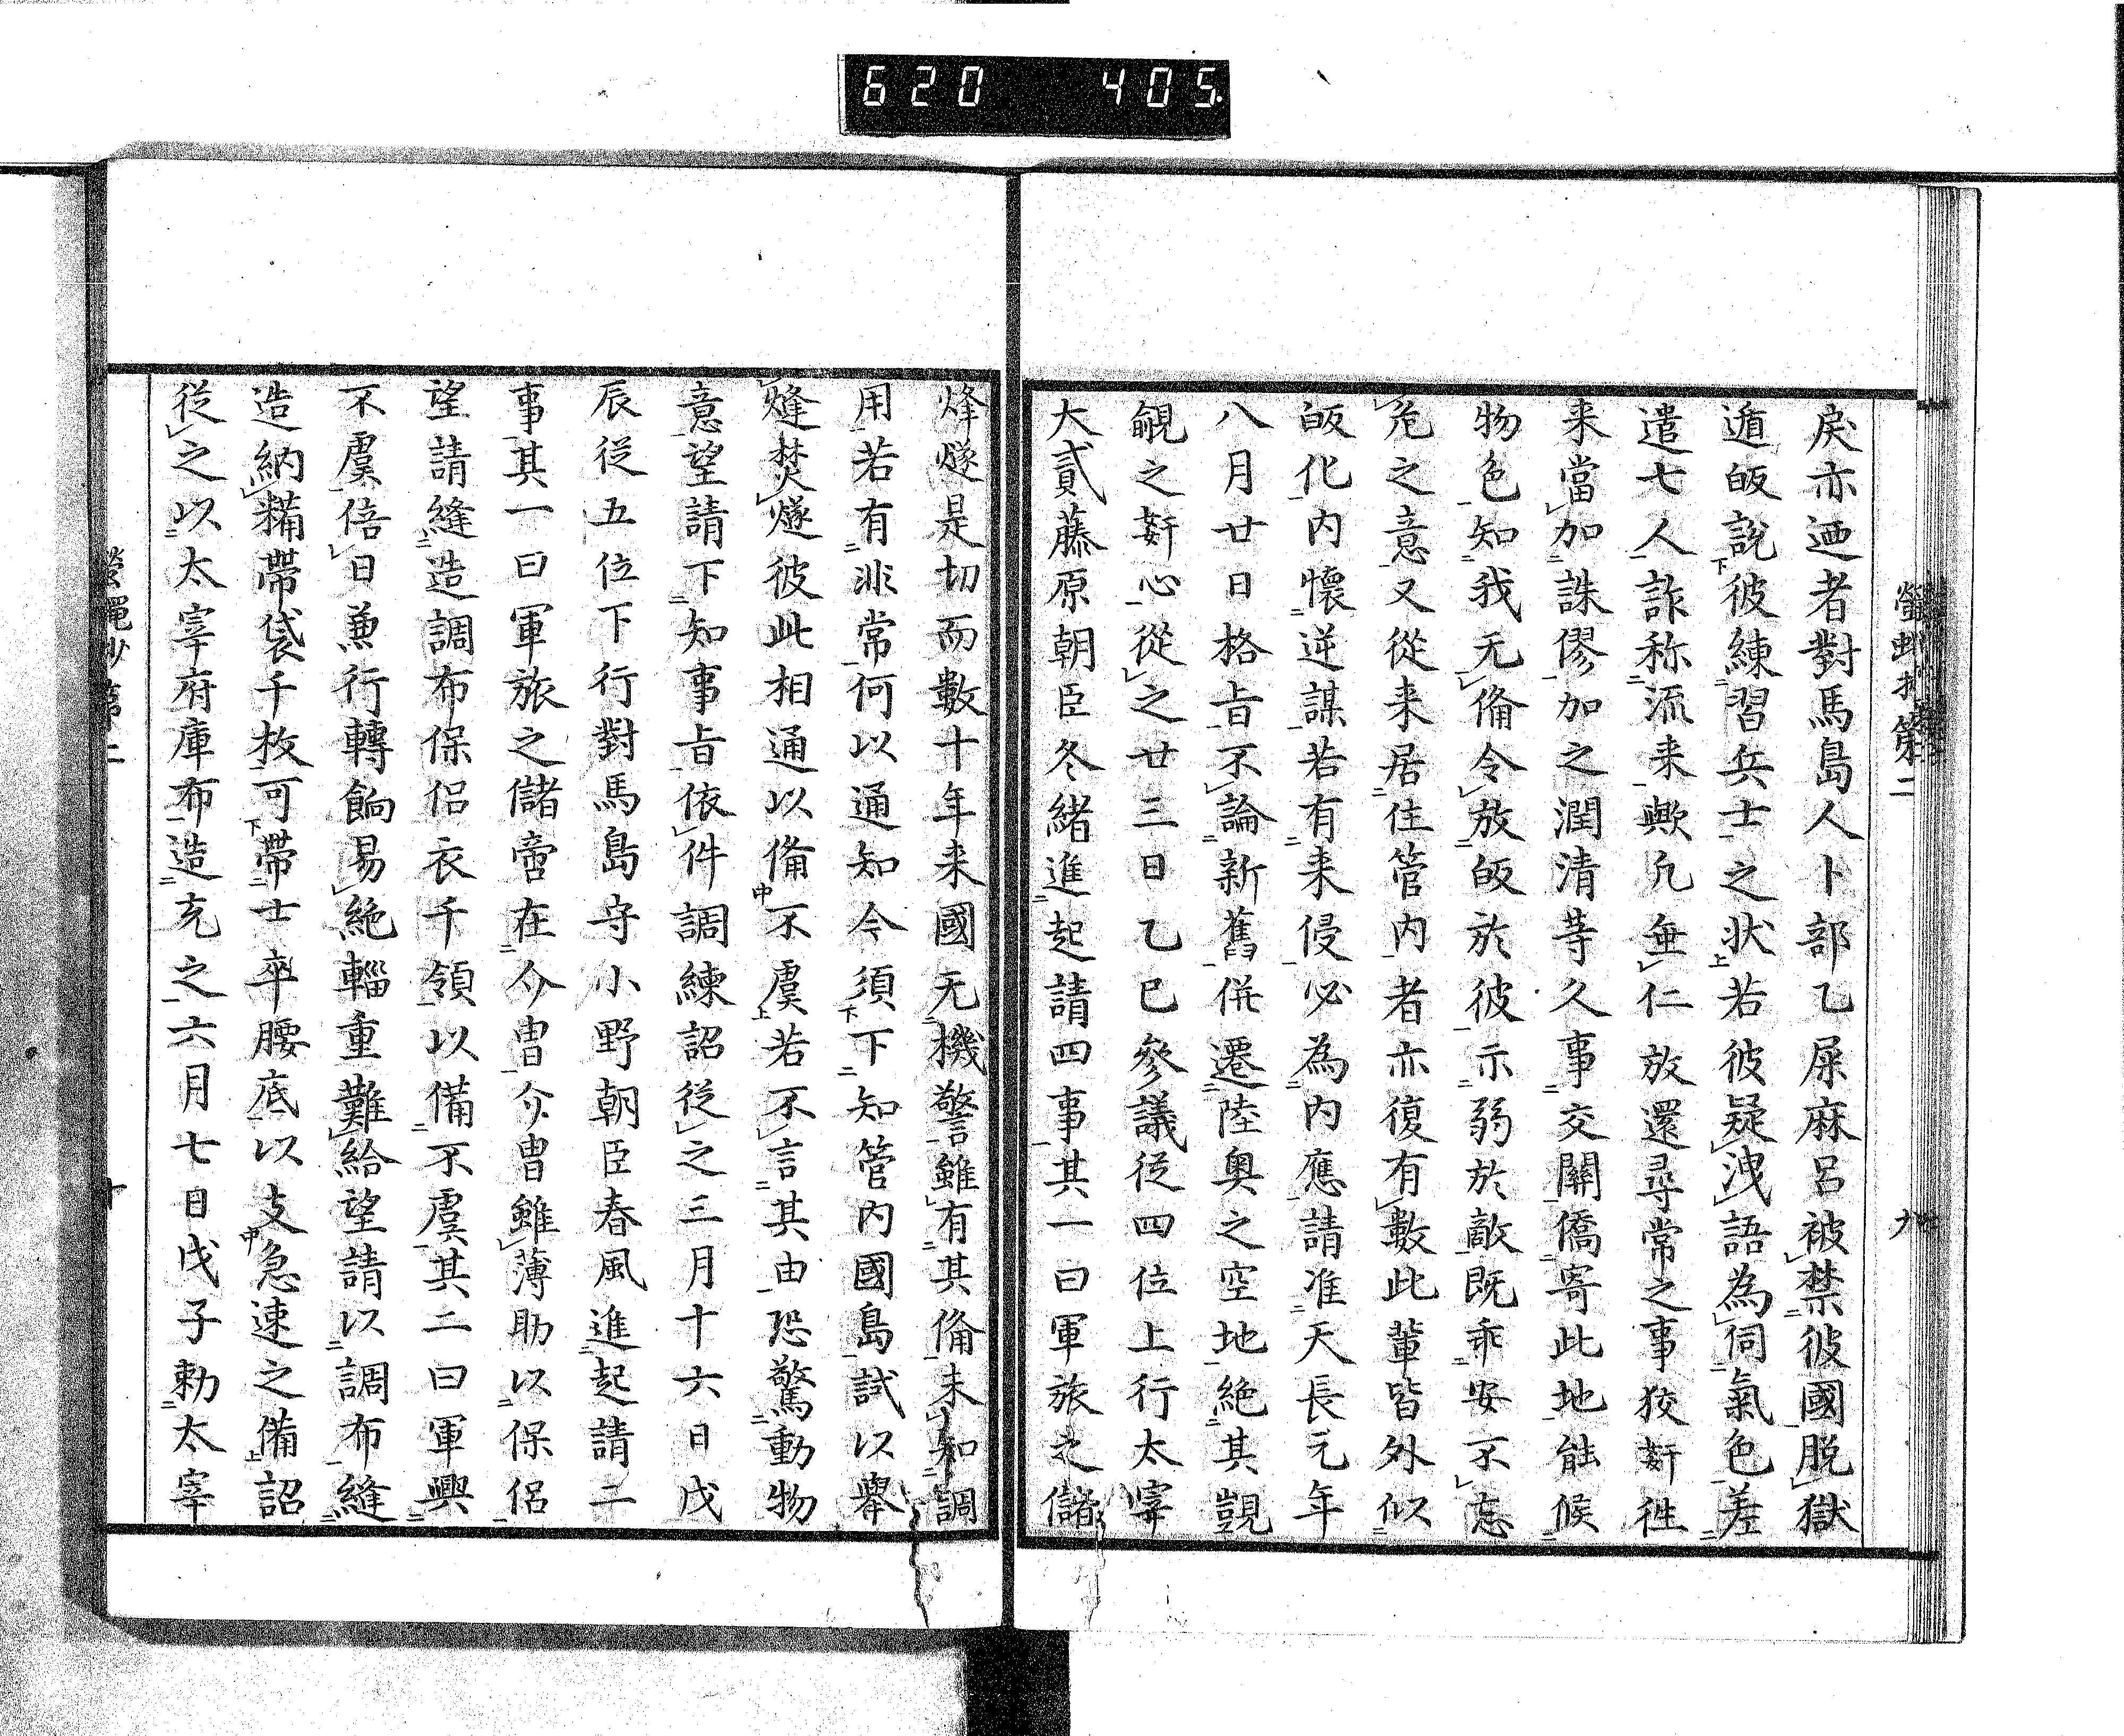 620 405
戻亦迺者對馬島人卜部乙屎麻呂被禁彼國脱獄
遁皈説彼練習兵士之状若彼疑洩語為伺氣色差
遣七人詐称流来歟凡垂仁放還尋常之事狡奸徃
来當加誅僇加之潤清䓁久事交關僑寄此地能候
物色知我无俻令放皈於彼示弱於敵既乖安不忘
危之意又從来居住管内者亦復有數此輩皆外似
皈化内懷逆謀若有来侵必為内應請准天長元年
八月廿日格旨不論新舊併遷陸奥之空地絶其覬
覦之奸心從之廿三日乙巳參議從四位上行太宰
大貳藤原朝臣冬緒進起請四事其一曰軍旅之儲
烽燧是切而數十年来國无機警雖有其俻未知調
用若有非常何以通知今須下知管内國島試以舉
烽焚燧彼此相通以俻不虞若不言其由恐驚動物
意望請下知事旨依件調練詔從之三月十六日戊
辰從五位下行對馬島守小野朝臣春風進起請二
事其一曰軍旅之儲啻在介冑介冑雖薄助以保侶
望請縫造調布保侶衣千領以備不虞其二曰軍興
不虞倍日兼行轉餉易絶輜重難給望請以調布縫
造納糒帶袋千枚可帶士卒腰底以支急速之備詔
從之以太宰府庫布造充之六月七日戊子勅太宰